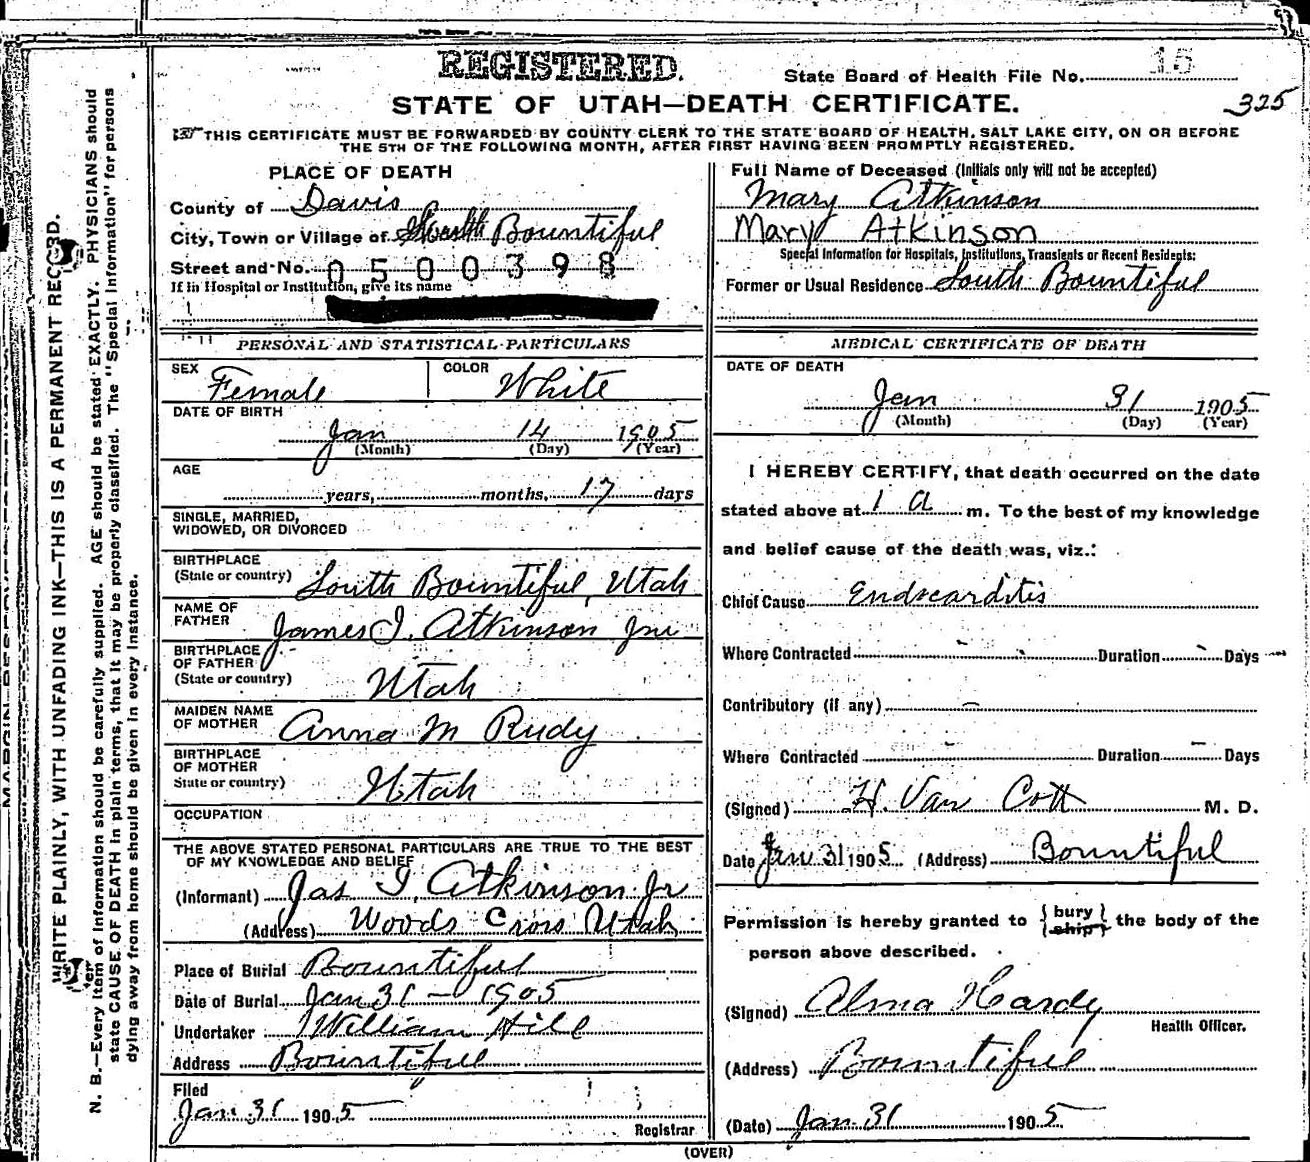 REGISTERED.
State Board of Health File No. 15
325
STATE OF UTAH—DEATH CERTIFICATE.
THIS CERTIFICATE MUST BE FORWARDED BY COUNTY CLERK TO THE STATE BOARD OF HEALTH, SALT LAKE CITY, ON OR BEFORE
THE 5TH OF THE FOLLOWING MONTH, AFTER FIRST HAVING BEEN PROMPTLY REGISTERED.
PLACE OF DEATH
County of Davis
City, Town or Village of South Bountiful
Street and No. 0500398
If in Hospital or Institution, give its name
Full Name of Deceased (Initials only will not be accepted)
Mary Atkinson
Mary Atkinson
Special Information for Hospitals, Institutions, Transients or Recent Residents:
Former or Usual Residence South Bountiful
PERSONAL AND STATISTICAL PARTICULARS
SEX Female COLOR White
DATE OF BIRTH
Jan 14 1905
(Month) (Day) (Year)
AGE
years, months, 17 days
SINGLE, MARRIED,
WIDOWED, OR DIVORCED
BIRTHPLACE
(State or country) South Bountiful, Utah
NAME OF
FATHER James I. Atkinson Jnr
BIRTHPLACE
OF FATHER
(State or country) Utah
MAIDEN NAME
OF MOTHER Anna M Rudy
BIRTHPLACE
OF MOTHER
State or country) Utah
OCCUPATION
THE ABOVE STATED PERSONAL PARTICULARS ARE TRUE TO THE BEST
OF MY KNOWLEDGE AND BELIEF
(Informant) Jas I. Atkinson Jr
(Address) Woods Cross Utah
Place of Burial Bountiful
Date of Burial Jan 31 — 1905
Undertaker William Hill
Address Bountiful
Filed
Jan 31 1905
Registrar
MEDICAL CERTIFICATE OF DEATH
DATE OF DEATH
Jan 31 1905
(Month) (Day) (Year)
I HEREBY CERTIFY, that death occurred on the date
stated above at 1 a m. To the best of my knowledge
and belief cause of the death was, viz.:
Chief Cause Endocarditis
Where Contracted - Duration - Days
Contributory (if any) -
Where Contracted - Duration - Days
(Signed) H. Van Cott M. D.
Date Jan 31 1905 (Address) Bountiful
Permission is hereby granted to {bury / ship} the body of the
person above described.
(Signed) Alma Hardy
Health Officer.
(Address) Bountiful
(Date) Jan 31 1905.
(OVER)
WRITE PLAINLY, WITH UNFADING INK—THIS IS A PERMANENT RECORD.
N. B.—Every item of information should be carefully supplied. AGE should be stated EXACTLY. PHYSICIANS should
state CAUSE OF DEATH in plain terms, that it may be properly classified. The "Special Information" for persons
dying away from home should be given in every instance.